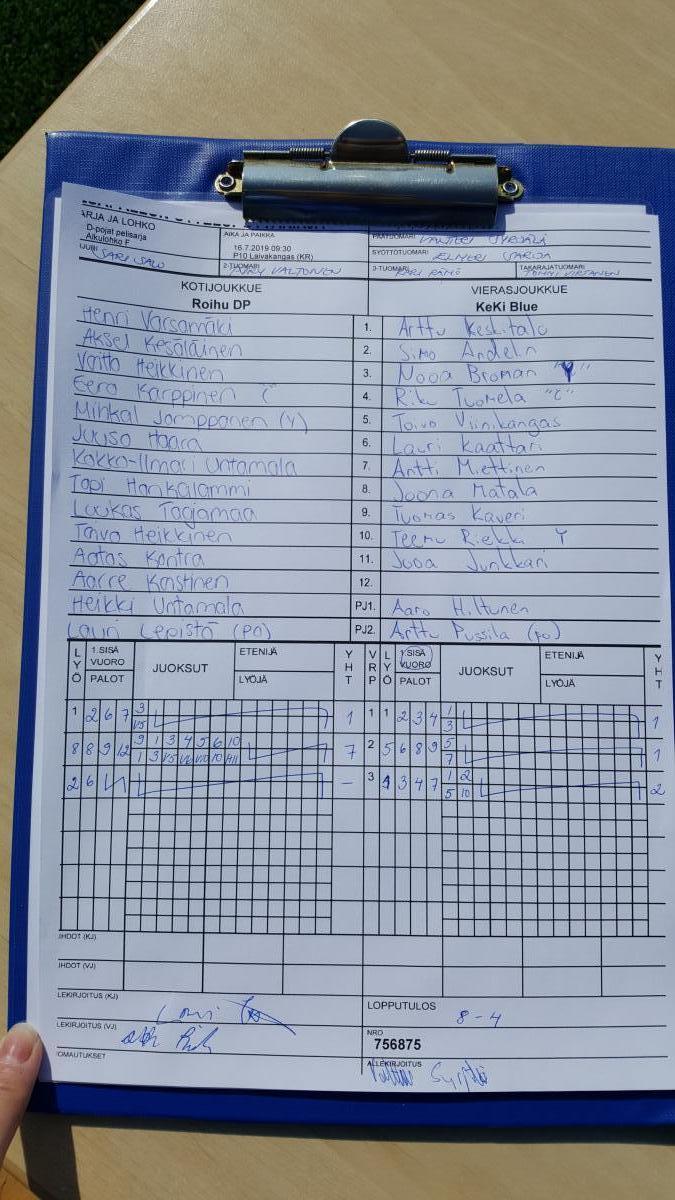 ARJA JA LOHKO
D-pojat pelisarja
Aikulohko F
SARI SALO
AIKA JA PAIKKA
16.7.2019 09:30
P10 Laivakangas (KR)
2-TUOMARI VALTONEN
PÄÄTUOMARI
SYÖTTÖTUOMARI ELMERI
3-TUOMARI KARI RÄMÖ
TAKARAJATUOMARI TOMMI VIRTANEN
KOTIJOUKKUE
Roihu DP
VIERASJOUKKUE
KeKi Blue
Henri Varsamäki 1. Arttu Keskitalo
Aksel Kesäläinen 2. Simo Andelin
Voitto Heikkinen 3. Nooa Broman
Eero Karppinen C 4. Riku Tuomela "C"
Mihkal Jomppanen (Y) 5. Toivo Viinikangas
Juuso Haara 6. Lauri Kaattari
Kokko-Ilmari Untamala 7. Antti Miettinen
Topi Hankalammi 8. Joona Matala
Luukas Tagjamaa 9. Tuomas Kaveri
Toivo Heikkinen 10. Teemu Riekki Y
Aatos Kontra 11. Juoa Junkkari
Aarre Kostinen 12.
Heikki Untamala PJ1. Aaro Hiltunen
Lauri Lepistö (po) PJ2. Arttu Pussila (po)
LYÖ 1.SISÄ VUORO PALOT JUOKSUT ETENIJÄ LYÖJÄ YHT VRP LYÖ 1.SISÄ VUORO PALOT JUOKSUT ETENIJÄ LYÖJÄ YHT
1 2 6 7 3 1 1 1 2 3 4 1 1
V5 3
8 8 9 12 9 1 3 4 5 6 10 7 2 5 6 8 9 5 1
7
2 6 – 3 1 3 4 7 1 2 2
5 10
IHDOT (KJ)
IHDOT (VJ)
LEKIRJOITUS (KJ)
LEKIRJOITUS (VJ)
OMAUTUKSET
LOPPUTULOS
8 - 4
NRO
756875
ALLEKIRJOITUS